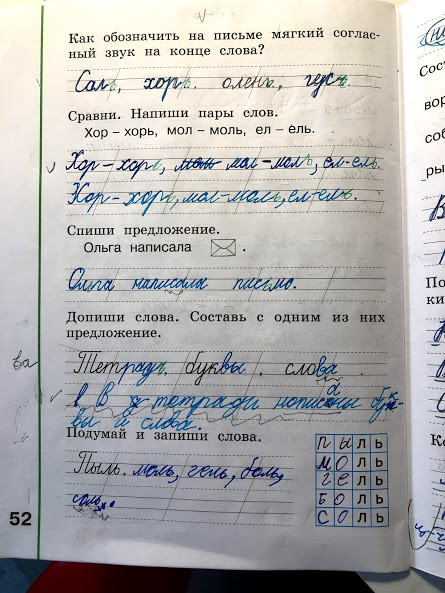 Как обозначить на письме мягкий соглас-
ный звук на конце слова?
Соль, хорь, олень, гусь.
Сравни. Напиши пары слов.
Хор – хорь, мол – моль, ел – ель.
Хор – хорь, мол – моль, ел – ель.
Хор – хорь, мол – моль, ел – ель.
Спиши предложение.
Ольга написала .
Ольга написала письмо.
Допиши слова. Составь с одним из них
предложение.
ва
Тетрадь, буквы, слова
в В тетради написаны бук-
вы и слова.
Подумай и запиши слова.
Пыль, моль, гель, боль,
соль.
п ы л ь
м о л ь
г е л ь
б о л ь
с о л ь
52
Сос
вор
соб
ры
По
ки